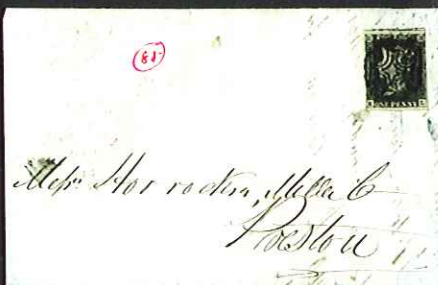 81-
ONE PENNY
Messrs Horrockses, Miller Co
Preston